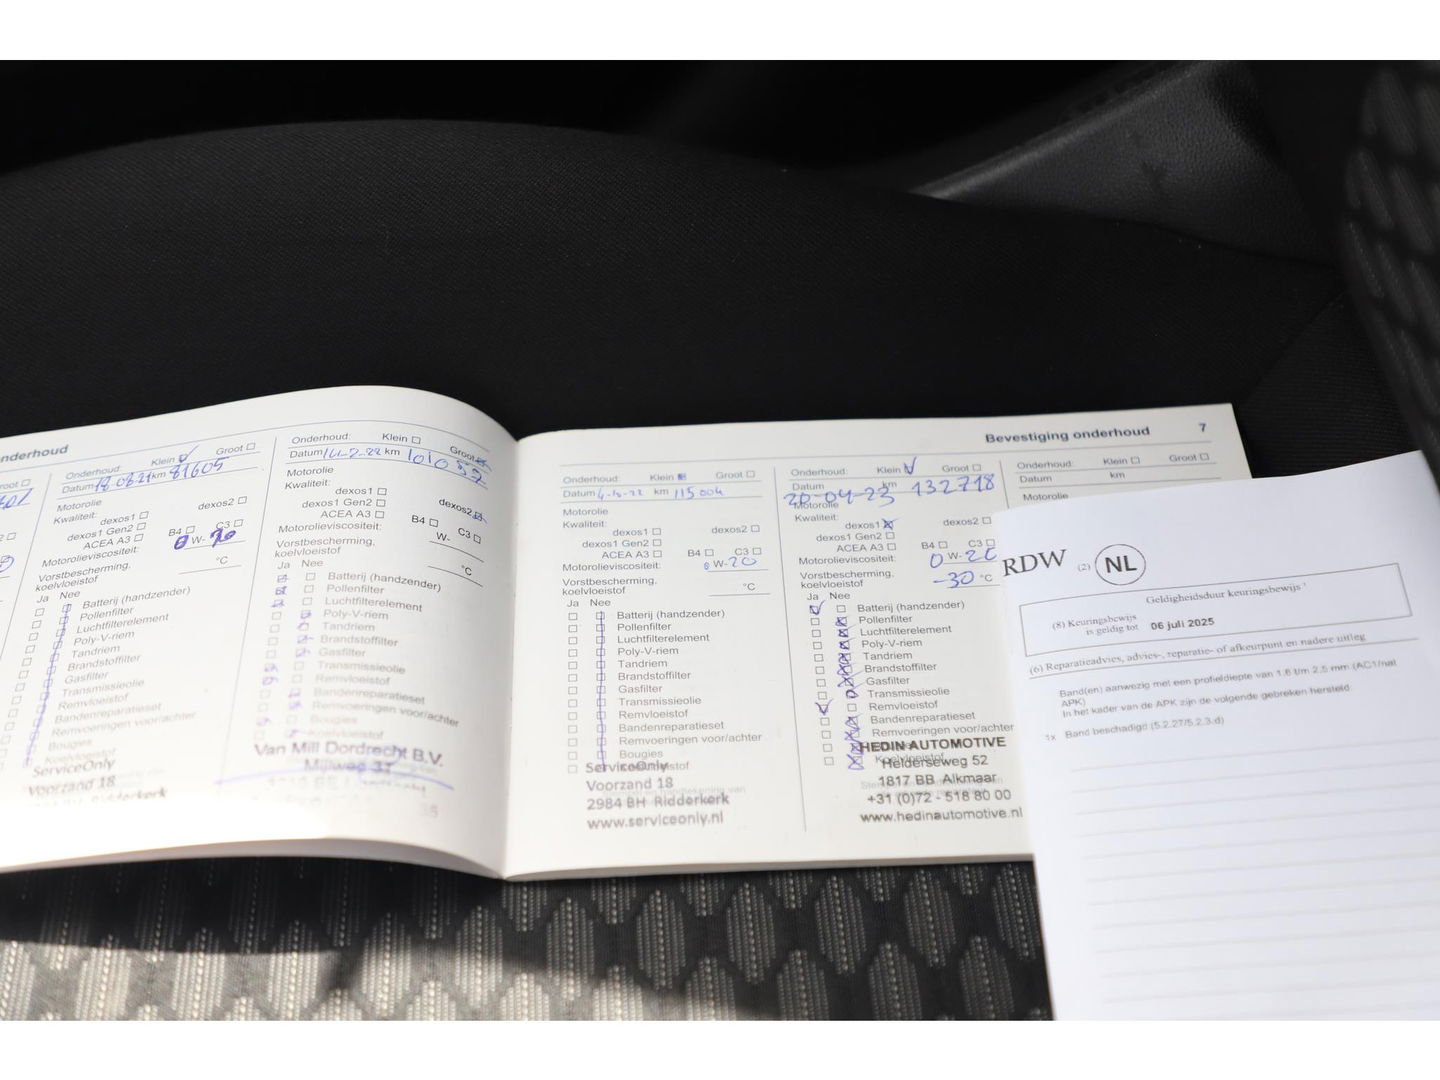 nderhoud
Onderhoud: Klein Groot
Datum 18-08-21 km 81605
Motorolie
Kwaliteit:
dexos1 dexos2
dexos1 Gen2
ACEA A3 B4 C3
Motorolieviscositeit: 0 W-20
Vorstbescherming,
koelvloeistof °C
Ja Nee
Batterij (handzender)
Pollenfilter
Luchtfilterelement
Poly-V-riem
Tandriem
Brandstoffilter
Gasfilter
Transmissieolie
Remvloeistof
Bandenreparatieset
Remvoeringen voor/achter
Bougies
Koelvloeistof
ServiceOnly
Voorzand 18
Ridderkerk
Onderhoud: Klein Groot
Datum 14-2-22 km 101052
Motorolie
Kwaliteit:
dexos1 dexos2
dexos1 Gen2
ACEA A3 B4 C3
Motorolieviscositeit: W-
Vorstbescherming,
koelvloeistof °C
Ja Nee
Batterij (handzender)
Pollenfilter
Luchtfilterelement
Poly-V-riem
Tandriem
Brandstoffilter
Gasfilter
Transmissieolie
Remvloeistof
Bandenreparatieset
Remvoeringen voor/achter
Bougies
Koelvloeistof
Van Mill Dordrecht B.V.
Mijlweg 31
Bevestiging onderhoud 7
Onderhoud: Klein Groot
Datum 4-10-22 km 115004
Motorolie
Kwaliteit:
dexos1 dexos2
dexos1 Gen2
ACEA A3 B4 C3
Motorolieviscositeit: 0 W-20
Vorstbescherming,
koelvloeistof °C
Ja Nee
Batterij (handzender)
Pollenfilter
Luchtfilterelement
Poly-V-riem
Tandriem
Brandstoffilter
Gasfilter
Transmissieolie
Remvloeistof
Bandenreparatieset
Remvoeringen voor/achter
Bougies
ServiceOnly
Voorzand 18
2984 BH Ridderkerk
www.serviceonly.nl
Onderhoud: Klein Groot
Datum km
20-04-23 132718
Motorolie
Kwaliteit:
dexos1 dexos2
dexos1 Gen2
ACEA A3 B4 C3
Motorolieviscositeit: 0 W-20
Vorstbescherming,
koelvloeistof -30 °C
Ja Nee
Batterij (handzender)
Pollenfilter
Luchtfilterelement
Poly-V-riem
Tandriem
Brandstoffilter
Gasfilter
Transmissieolie
Remvloeistof
Bandenreparatieset
Remvoeringen voor
HEDIN AUTOMOTIVE
Helderseweg 52
1817 BB Alkmaar
+31 (0)72 - 518 80 00
www.hedinautomotive.nl
Onderhoud: Klein Groot
Datum km
Motorolie
RDW (2) NL
Geldigheidsduur keuringsbewijs
(8) Keuringsbewijs
is geldig tot 06 juli 2025
(6) Reparatieadvies, advies-, reparatie- of afkeurpunt en nadere uitleg
Band(en) aanwezig met een profieldiepte van 1.6 t/m 2.5 mm (AC1/nat
APK)
In het kader van de APK zijn de volgende gebreken hersteld:
1x Band beschadigd (5.2.27/5.2.3.d)